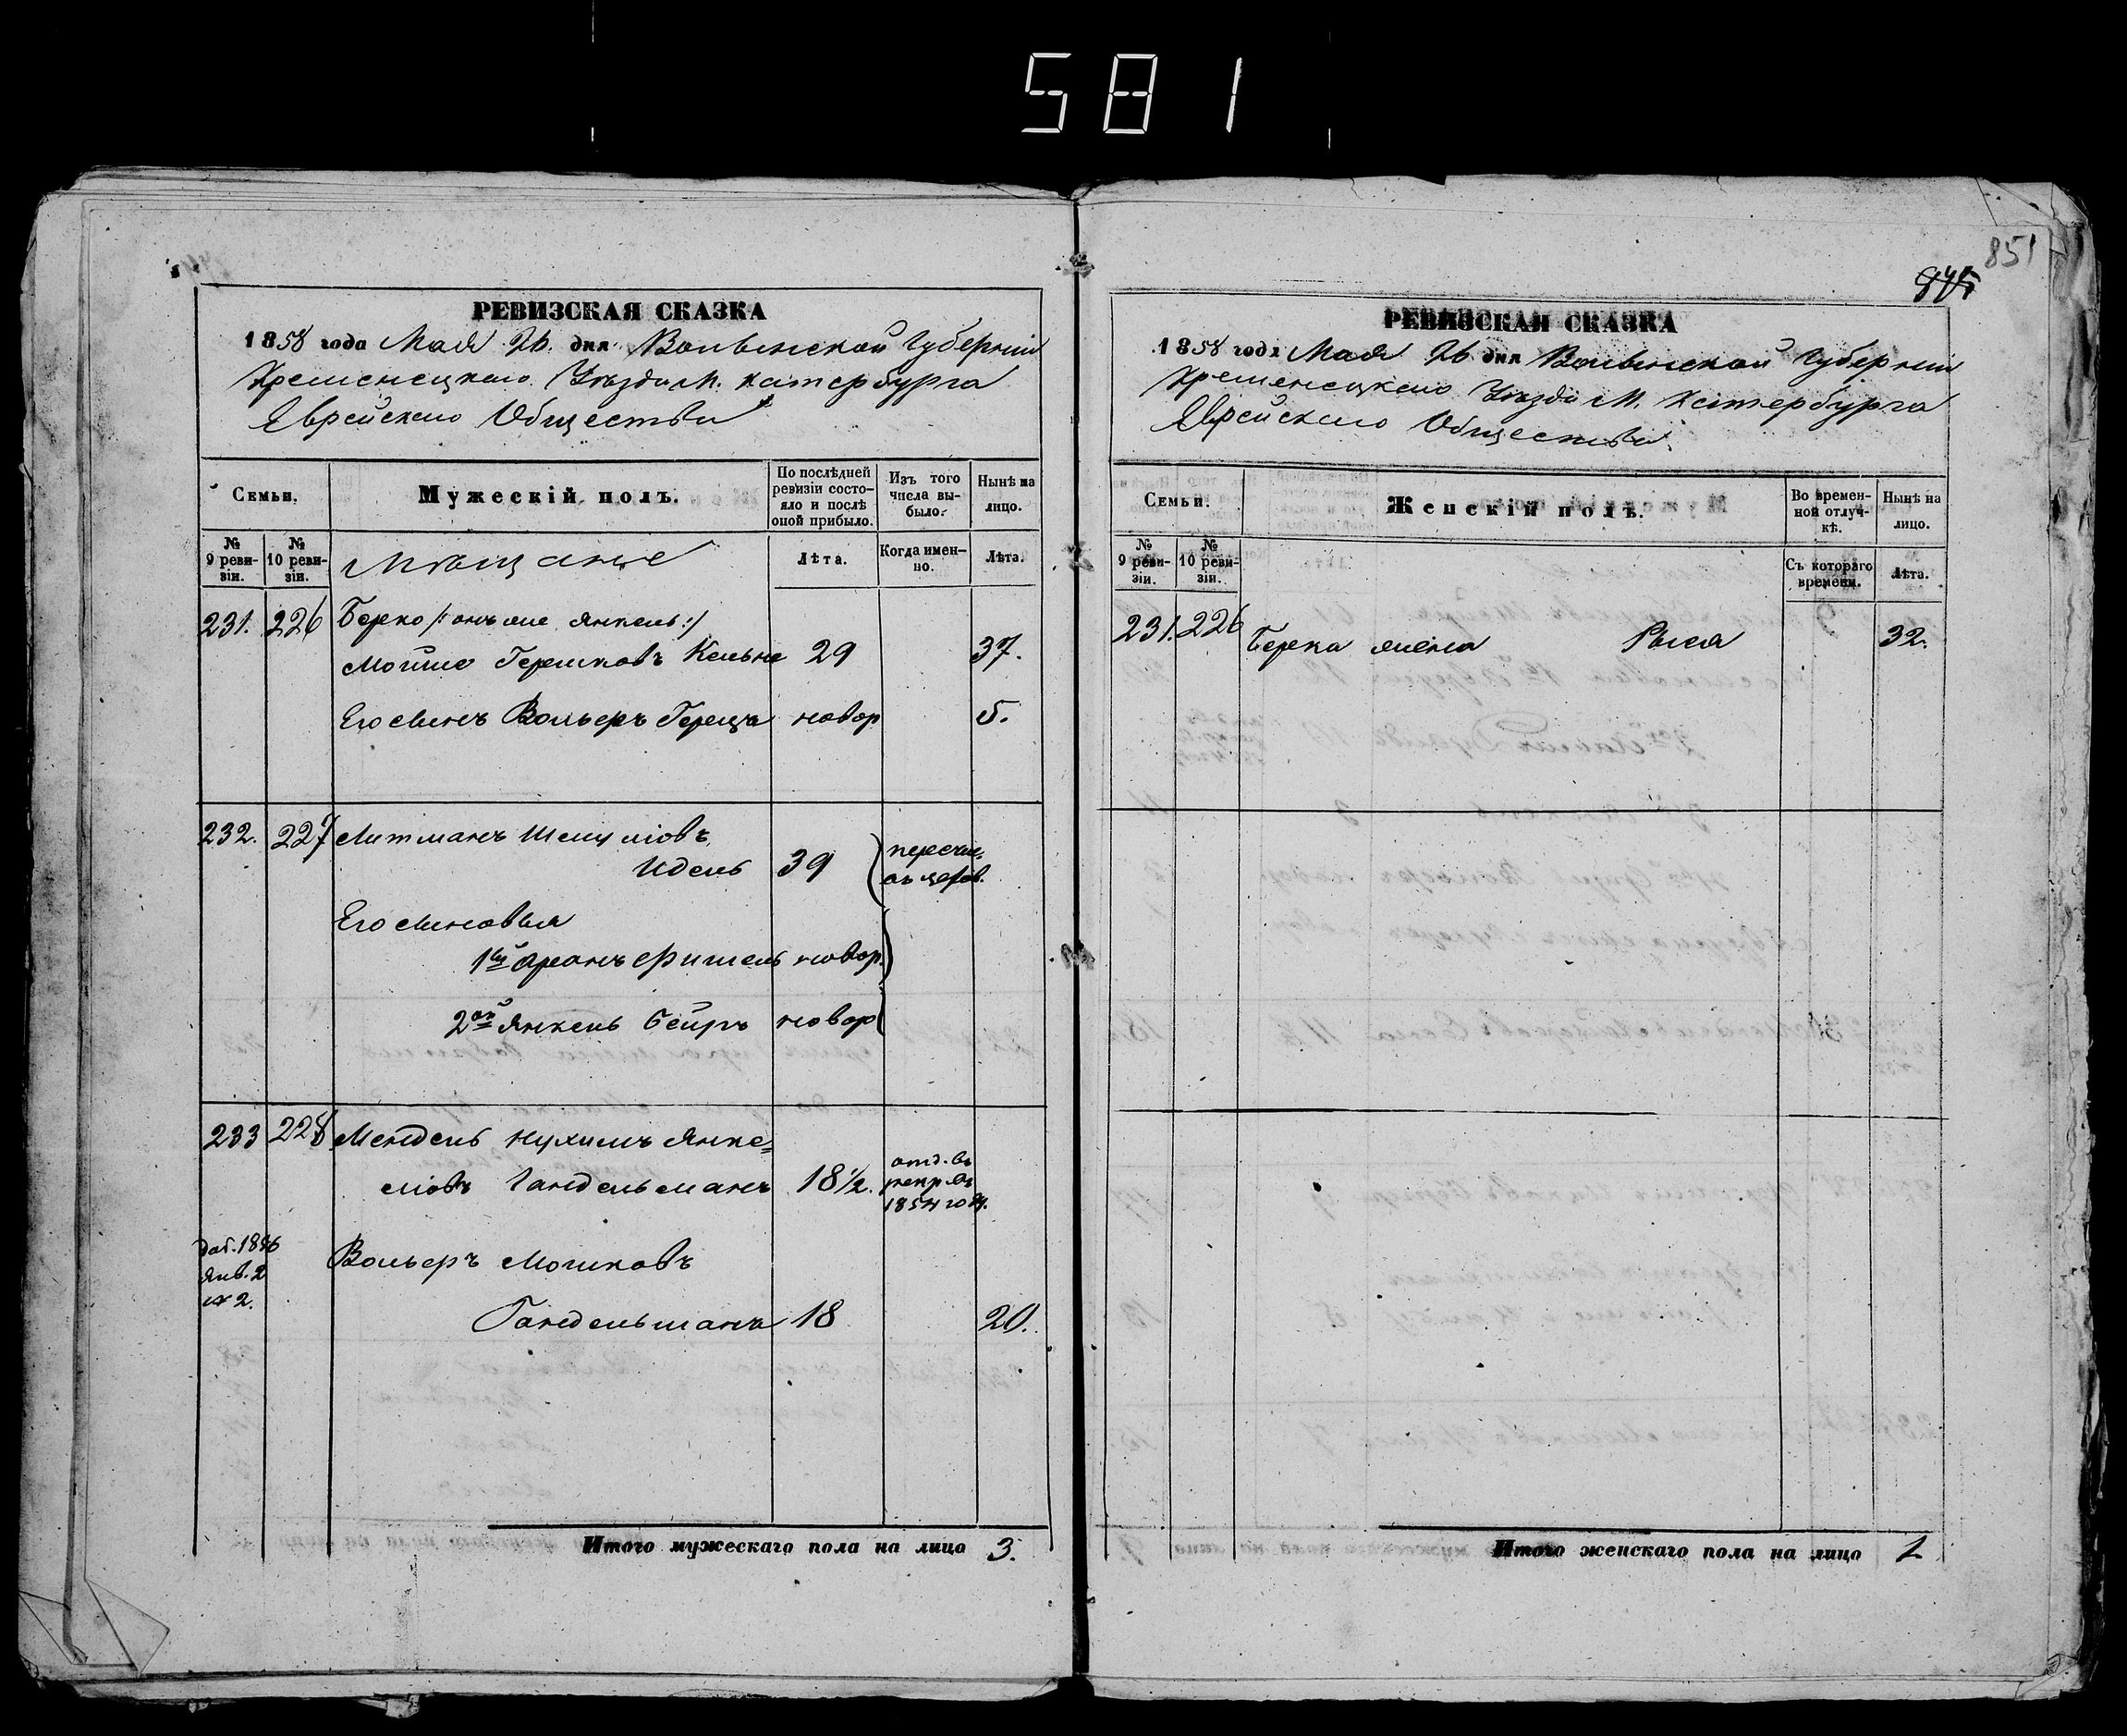 581
851
РЕВИЗСКАЯ СКАЗКА
1858 года Мая 26 дня Волынской Губерніи
Кременецкаго Уѣзда М. Катербурга
Еврейскаго Общества
Семьи.
Мужескій полъ.
По послѣдней ревизіи состояло и послѣ оной прибыло.
Изъ того числа выбыло.
Нынѣ на лицо.
№ 9 ревизіи.
№ 10 ревизіи.
Мѣщане
Лѣта.
Когда именно.
Лѣта.
231. 226 Берко /: онъ же Янкель :/
Мойше Гершковъ 29 37.
Его сынъ Вольфъ Герша новор 5.
232. 227 Литманъ
Идель 39 перечис.
Его сыновья
1й Аронъ Фишель новор.
2ой Янкель новор
233 228 Мендель Нухимъ Янке=
леовъ Гандельманъ 18½. отд. въ рекр. въ 1854 год.
1856 Янв. 2 № 2.
Вольфъ Мошковъ
Гандельманъ 18 20.
Итого мужескаго пола на лицо 3.
РЕВИЗСКАЯ СКАЗКА
1858 года Мая 26 дня Волынской Губерніи
Кременецкаго Уѣзда М. Катербурга
Еврейскаго Общества
Семьи.
Женскій полъ.
Во временной отлучкѣ.
Нынѣ на лицо.
№ 9 ревизіи.
№ 10 ревизіи.
Съ котораго времени.
Лѣта.
231. 226 Берка жена Рыся 32.
Итого женскаго пола на лицо 1